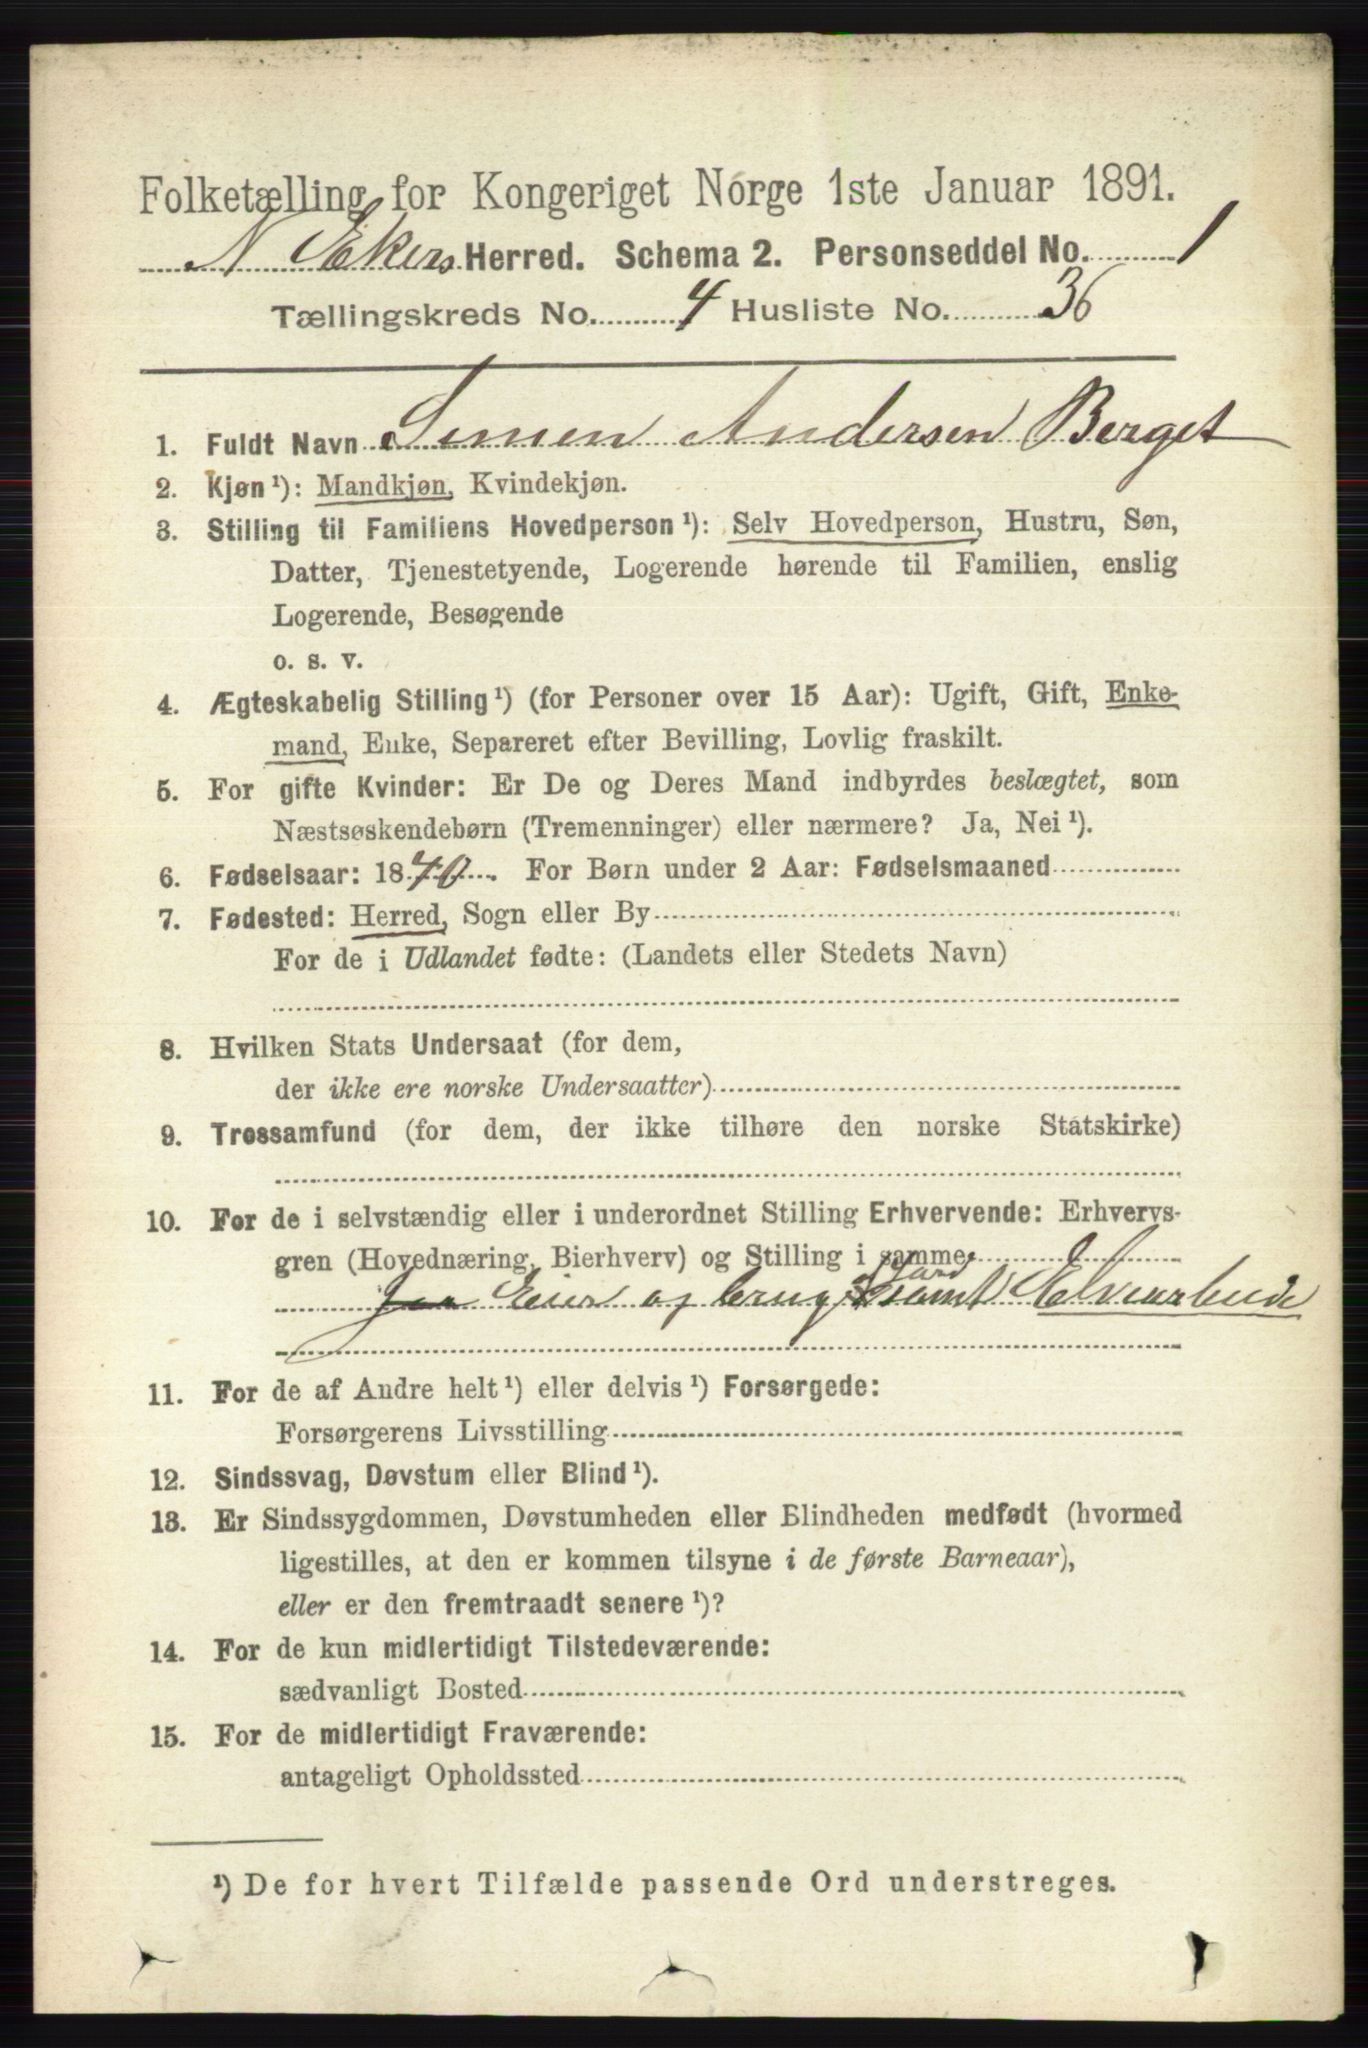 Folketælling for Kongeriget Norge 1ste Januar 1891.
N Ekers Herred. Schema 2. Personseddel No. 1
Tællingskreds No. 4 Husliste No. 36
1. Fuldt Navn Simen Andersen Berget
2. Kjøn ¹): Mandkjøn, Kvindekjøn.
3. Stilling til Familiens Hovedperson ¹): Selv Hovedperson, Hustru, Søn,
Datter, Tjenestetyende, Logerende hørende til Familien, enslig
Logerende, Besøgende
o. s. v.
4. Ægteskabelig Stilling ¹) (for Personer over 15 Aar): Ugift, Gift, Enke-
mand, Enke, Separeret efter Bevilling, Lovlig fraskilt.
5. For gifte Kvinder: Er De og Deres Mand indbyrdes beslægtet, som
Næstsøskendebørn (Tremenninger) eller nærmere? Ja, Nei ¹).
6. Fødselsaar: 1840. For Børn under 2 Aar: Fødselsmaaned
7. Fødested: Herred, Sogn eller By
For de i Udlandet fødte: (Landets eller Stedets Navn)
8. Hvilken Stats Undersaat (for dem,
der ikke ere norske Undersaatter)
9. Trossamfund (for dem, der ikke tilhøre den norske Statskirke)
10. For de i selvstændig eller i underordnet Stilling Erhvervende: Erhvervs-
gren (Hovednæring, Bierhverv) og Stilling i samme
Eier og brug af Jord samt Elvearbeide
11. For de af Andre helt ¹) eller delvis ¹) Forsørgede:
Forsørgerens Livsstilling
12. Sindssvag, Døvstum eller Blind ¹).
13. Er Sindssygdommen, Døvstumheden eller Blindheden medfødt (hvormed
ligestilles, at den er kommen tilsyne i de første Barneaar),
eller er den fremtraadt senere ¹)?
14. For de kun midlertidigt Tilstedeværende:
sædvanligt Bosted
15. For de midlertidigt Fraværende:
antageligt Opholdssted
¹) De for hvert Tilfælde passende Ord understreges.